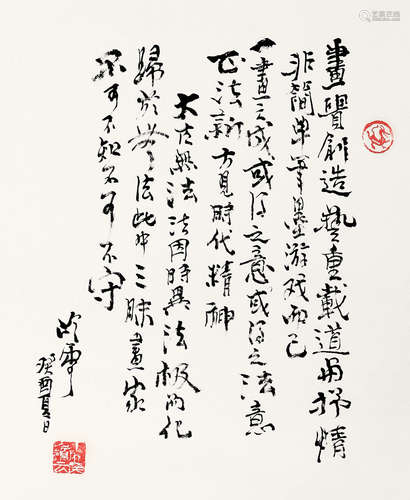 畫貴創造藝重載道用抒情
非簡單筆墨游戏而已
一畫之成或得之意或得之法意
正法新方見時代精神
大法無法法因時異法极而化
歸於無法此中三昧畫家
不可不知不可不守
癸酉夏日